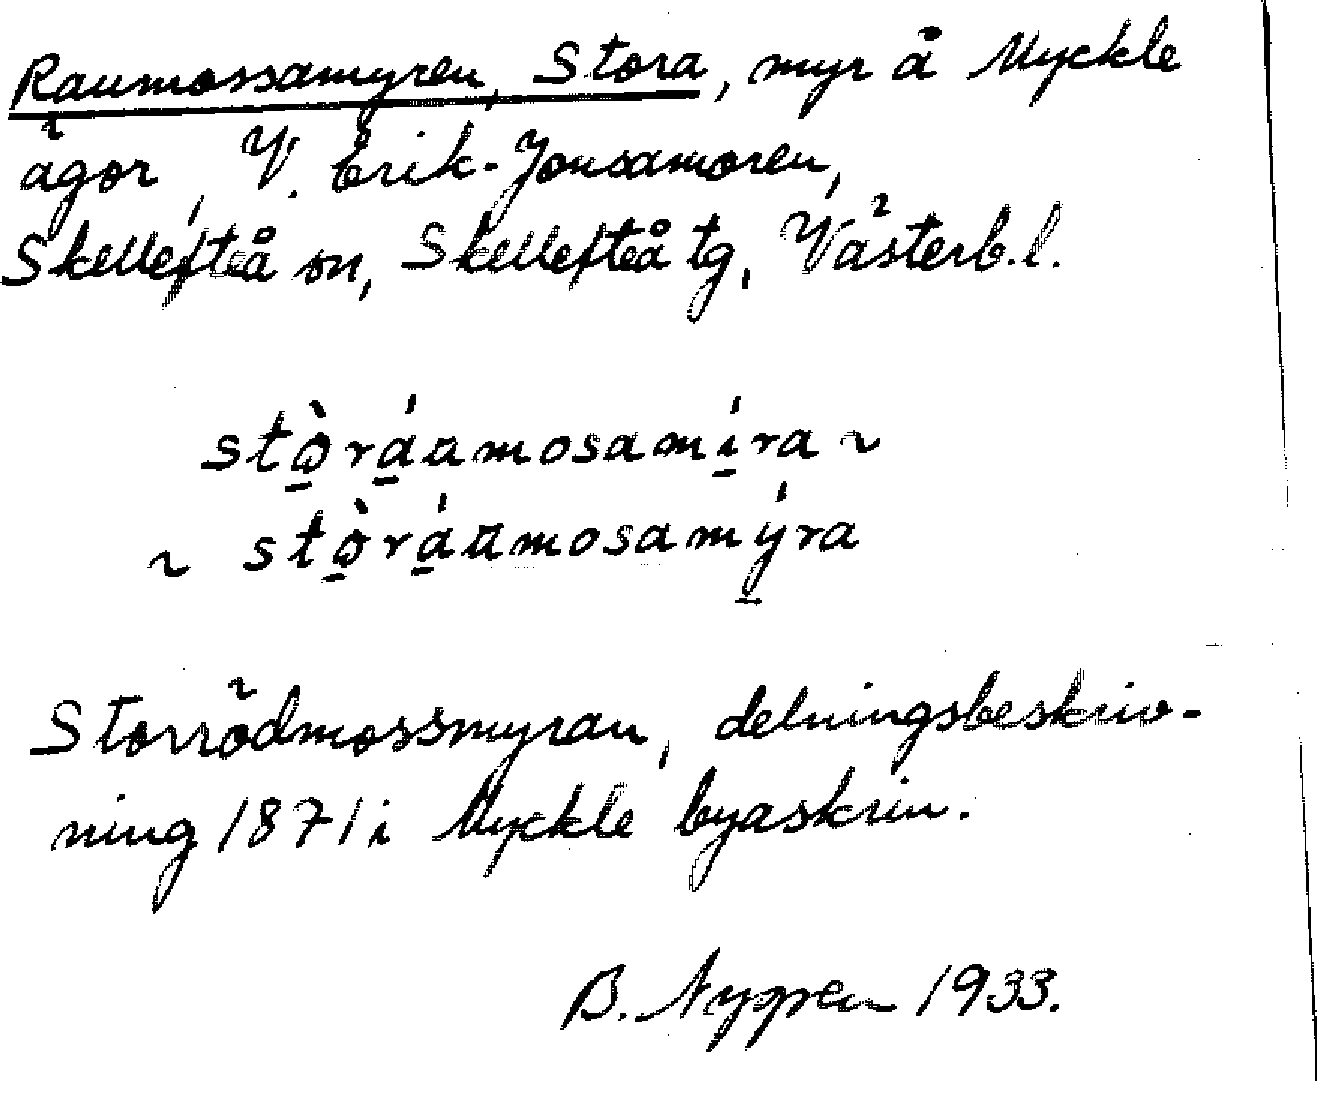 Raumossamyren, Stora, myr å Myckle
ägor, V. Erik-Jonsamoren,
Skellefteå sn, Skellefteå tg, Västerb.l.
stò̠rá̠ɑmosamí̠ra ~
~ stò̠rá̠ɑ̈mosamý̠ra
Storrödmossmyran, delningsbeskriv-
ning 1871 i Myckle byaskrin.
B. Nygren 1933.